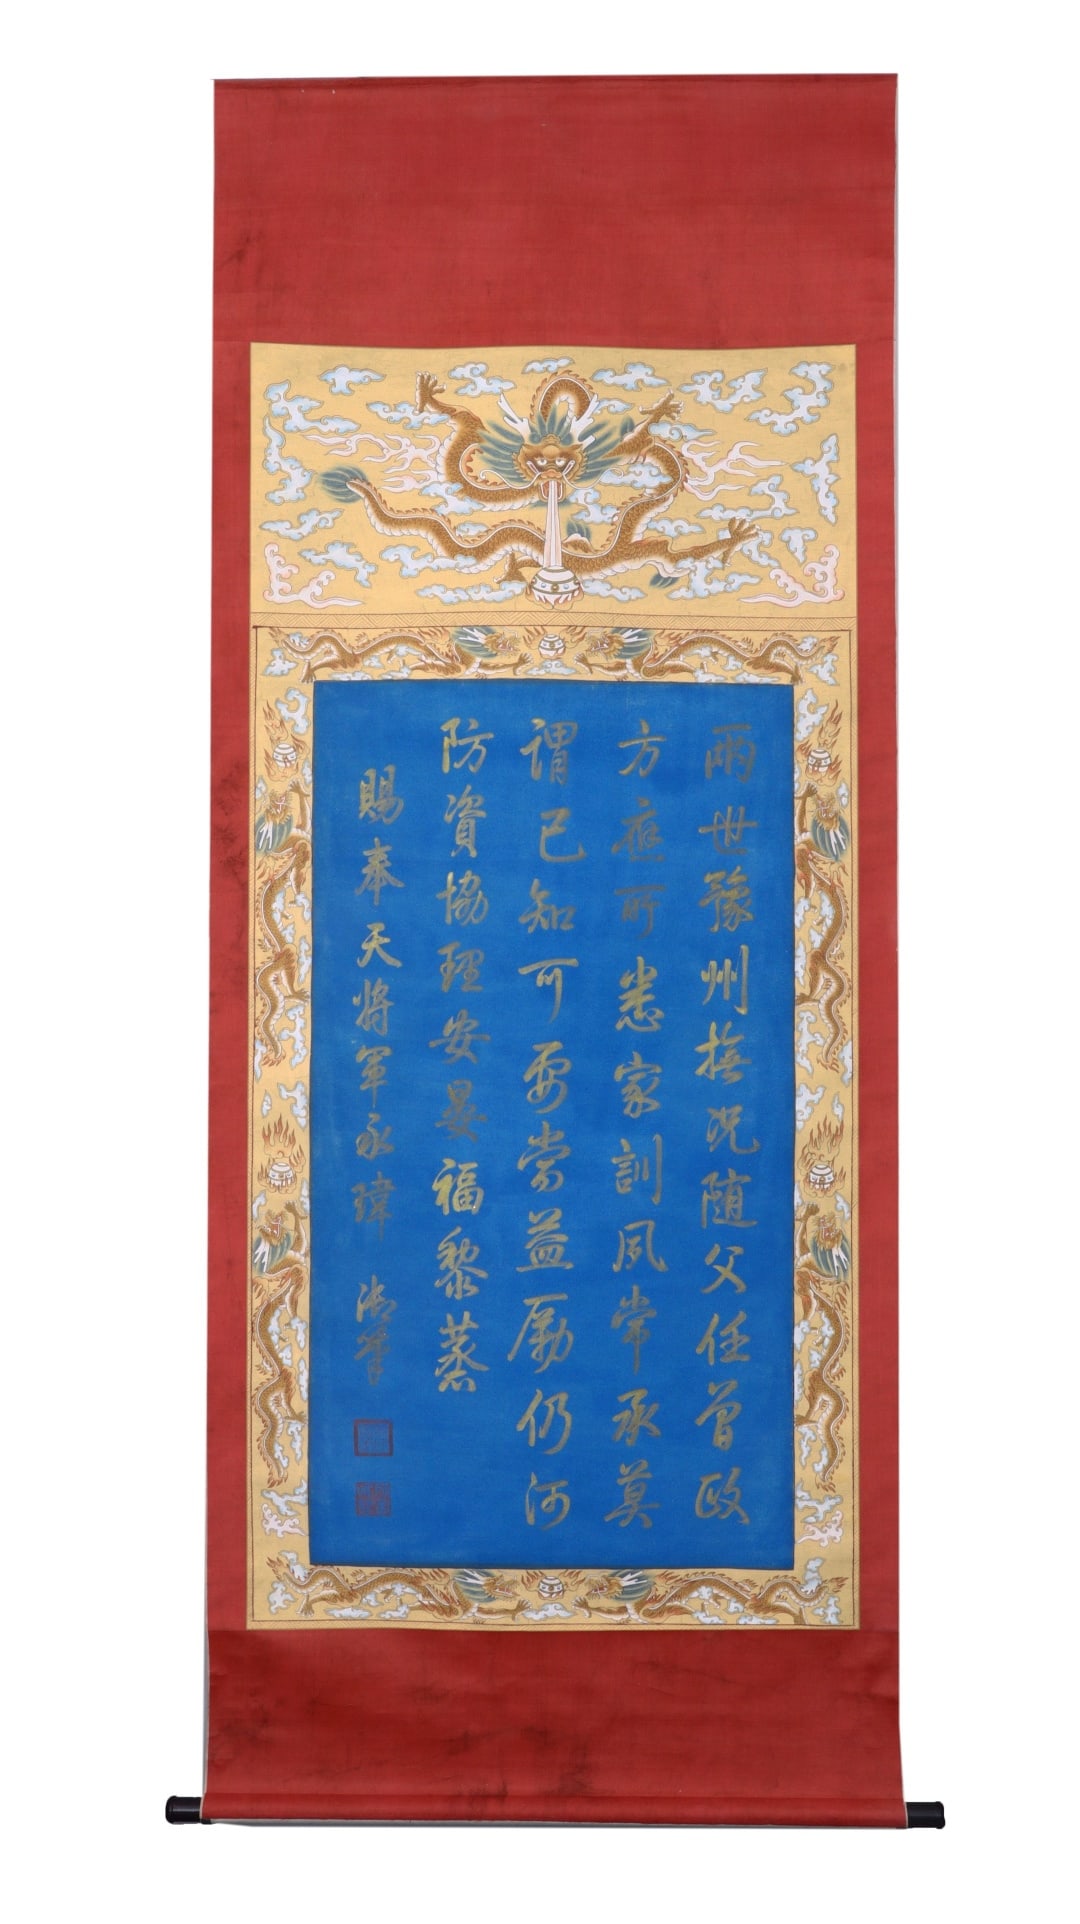 兩世豫州撫况随父任曾政
方應可悉家訓夙常承莫
謂已知可要當益勵仍河
防資協理安晏福黎蒸
賜奉天將軍永瑋 御筆